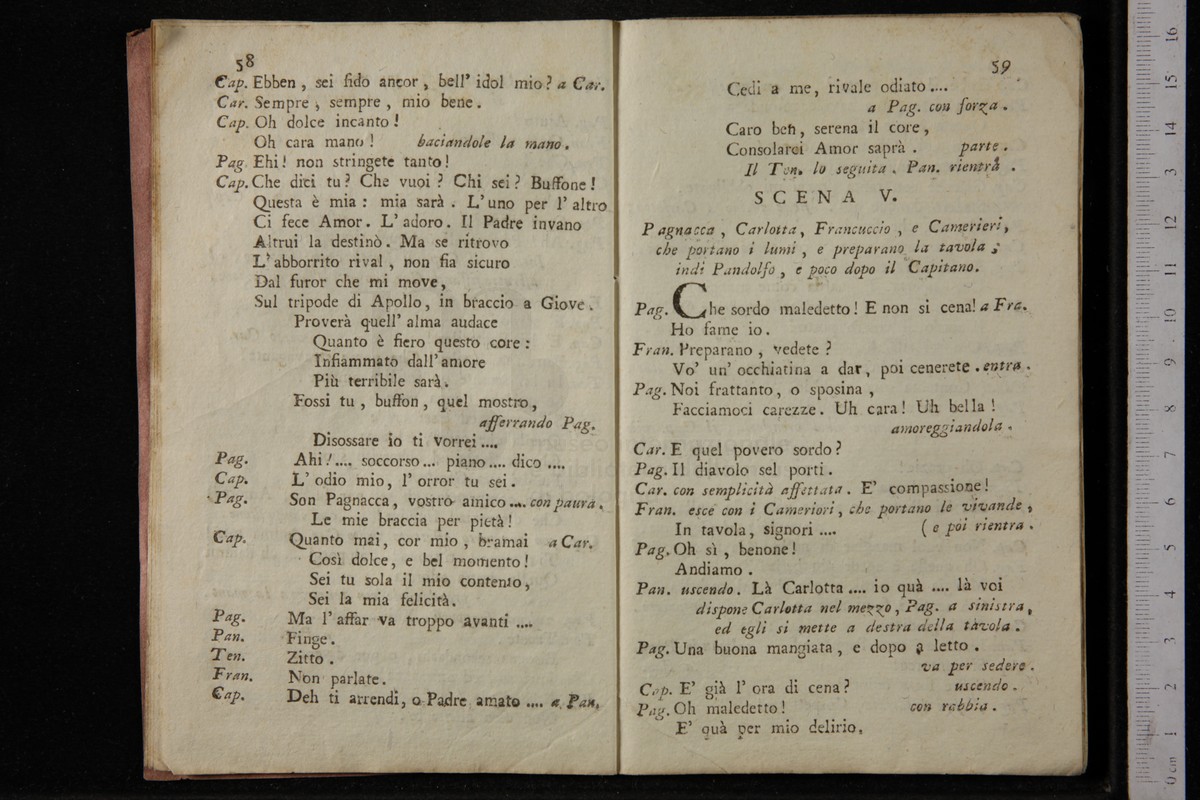 58
Cap. Ebben, sei fido ancor, bell' idol mio? a Car.
Car. Sempre, sempre, mio bene.
Cap. Oh dolce incanto!
Oh cara mano! baciandole la mano.
Pag. Ehi! non stringete tanto!
Cap. Che dici tu? Che vuoi? Chi sei? Buffone!
Questa è mia: mia sarà. L'uno per l'altro
Ci fece Amor. L'adoro. Il Padre invano
Altrui la destinò. Ma se ritrovo
L'abborrito rival, non fia sicuro
Dal furor che mi move,
Sul tripode di Apollo, in braccio a Giove.
Proverà quell' alma audace
Quanto è fiero questo core:
Infiammato dall'amore
Più terribile sarà.
Fossi tu, buffon, quel mostro,
afferrando Pag.
Disossare io ti vorrei....
Pag. Ahi!.... soccorso... piano.... dico....
Cap. L'odio mio, l'orror tu sei.
Pag. Son Pagnacca, vostro amico.... con paura.
Le mie braccia per pietà!
Cap. Quanto mai, cor mio, bramai a Car.
Così dolce, e bel momento!
Sei tu sola il mio contento,
Sei la mia felicità.
Pag. Ma l'affar va troppo avanti....
Pan. Finge.
Ten. Zitto.
Fran. Non parlate.
Cap. Deh ti arrendi, o Padre amato.... a Pan.
59
Cedi a me, rivale odiato....
a Pag. con forza.
Caro ben, serena il core,
Consolarci Amor saprà. parte.
Il Ten. lo seguita. Pan. rientra.
SCENA V.
Pagnacca, Carlotta, Francuccio, e Camerieri,
che portano i lumi, e preparano la tavola;
indi Pandolfo, e poco dopo il Capitano.
Pag. Che sordo maledetto! E non si cena! a Fra.
Ho fame io.
Fran. Preparano, vedete?
Vo' un' occhiatina a dar, poi cenerete. entra.
Pag. Noi frattanto, o sposina,
Facciamoci carezze. Uh cara! Uh bella!
amoreggiandola.
Car. E quel povero sordo?
Pag. Il diavolo sel porti.
Car. con semplicità affettata. E' compassione!
Fran. esce con i Cameriori, che portano le vivande,
In tavola, signori.... (e poi rientra.
Pag. Oh sì, benone!
Andiamo.
Pan. uscendo. Là Carlotta.... io quà.... là voi
dispone Carlotta nel mezzo, Pag. a sinistra,
ed egli si mette a destra della tavola.
Pag. Una buona mangiata, e dopo a letto.
va per sedere.
Cap. E' già l'ora di cena? uscendo.
Pag. Oh maledetto! con rabbia.
E' quà per mio delirio,
16
15
14
13
12
11
10
9
8
7
6
5
4
3
2
1
0 cm